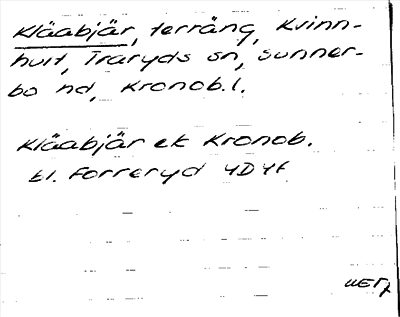 Kläabjär, terräng, Kvinn-
hult, Traryds sn, Sunner-
bo hd, Kronob.l.
Kläabjär ek Kronob.
bl. Forreryd 4D4f
WETJ